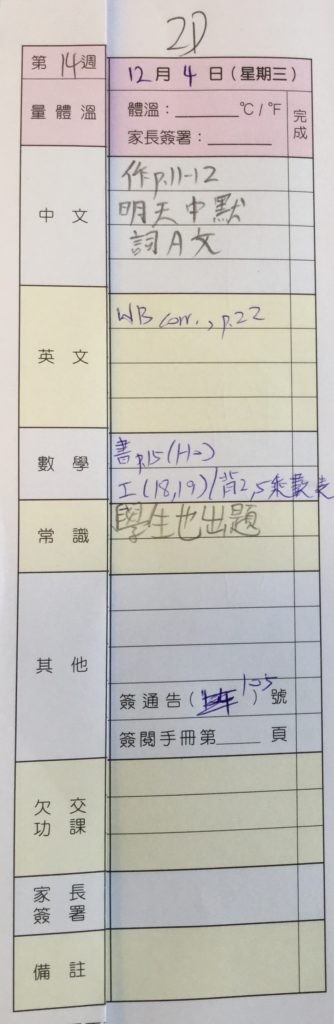 2D
第14週 12月4日(星期三)
量體溫 體溫:______ °C/°F 完成
家長簽署:______
中文 作p.11-12
明天中默
詞A文
英文 WB corr., p.22
數學 書p.15(H)
工(18,19)/背2,5乘數表
常識 學生也出題
其他
簽通告(105)號
簽閱手冊第____頁
欠交功課
家長簽署
備註